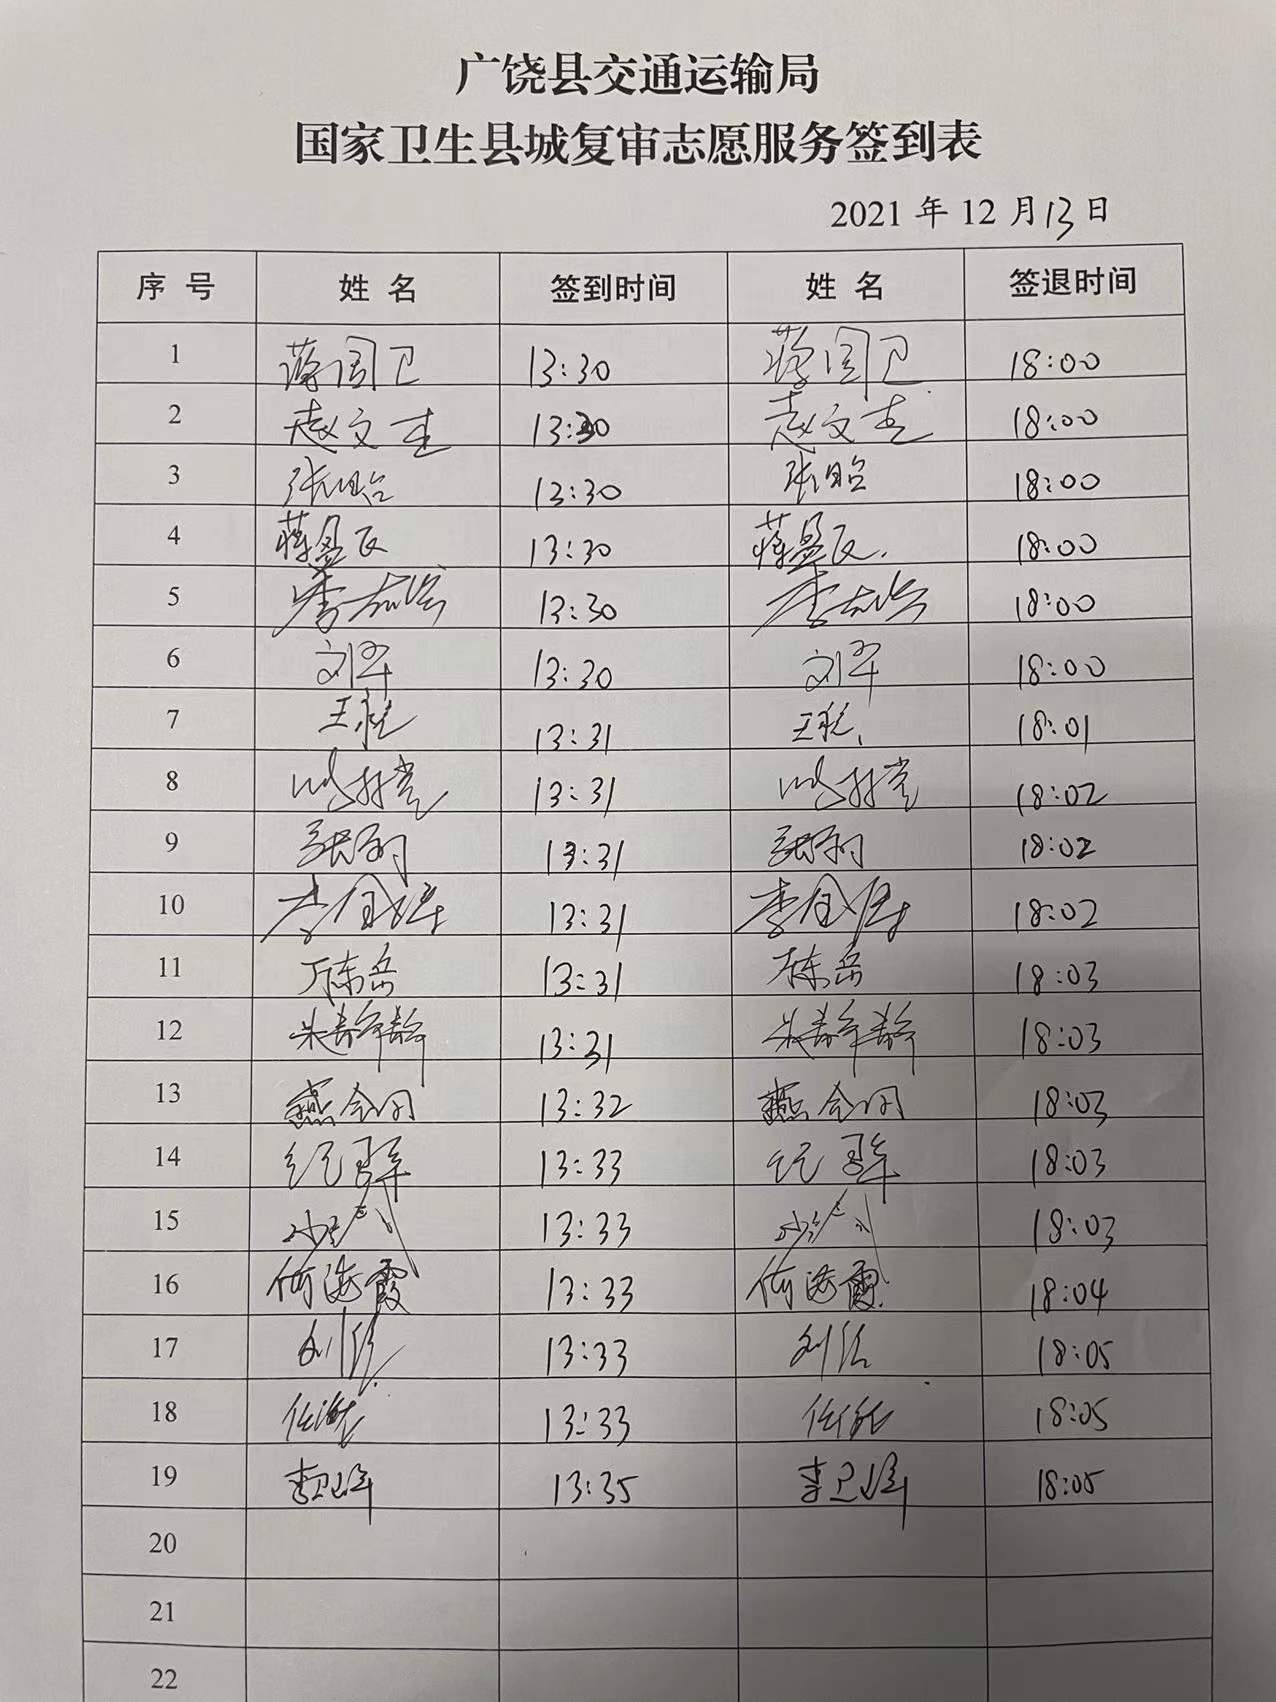 广饶县交通运输局
国家卫生县城复审志愿服务签到表
2021 年 12 月 13 日
序 号 姓 名 签到时间 姓 名 签退时间
1 蒋国卫 13:30 蒋国卫 18:00
2 赵文杰 13:30 赵文杰 18:00
3 张昭 13:30 张昭 18:00
4 蒋显民 13:30 蒋显民 18:00
5 李 13:30 李 18:00
6 刘军 13:30 刘军 18:00
7 王 13:31 王 18:01
8 13:31 18:02
9 张 13:31 张 18:02
10 李金峰 13:31 李金峰 18:02
11 岳 13:31 岳 18:03
12 朱 13:31 朱 18:03
13 燕会 13:32 燕会 18:03
14 纪 13:33 纪 18:03
15 13:33 18:03
16 何海霞 13:33 何海霞 18:04
17 刘 13:33 刘 18:05
18 任 13:33 任 18:05
19 李卫峰 13:35 李卫峰 18:05
20
21
22